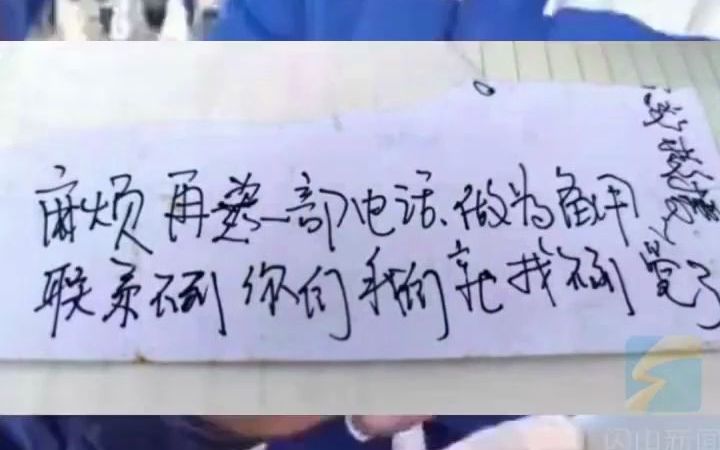 麻烦再一部电话、做为备用
联系不到你们我们就找不到觉了
闪电新闻